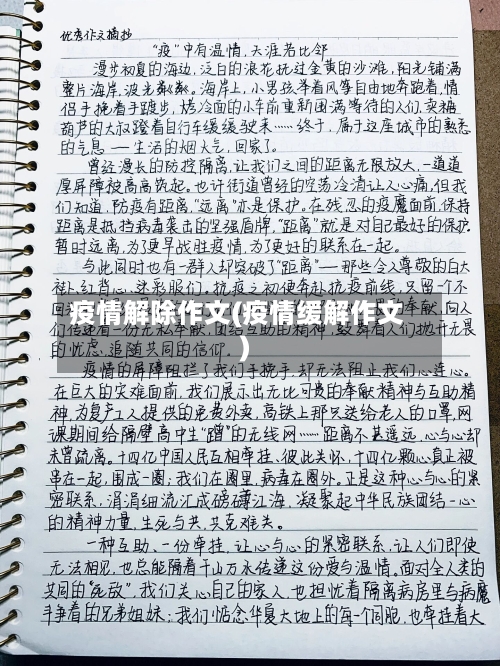 优秀作文摘抄
“疫”中有温情,天涯若比邻
漫步初夏的海边,泛白的浪花抚过金黄的沙滩,阳光铺满
整片海岸,波光粼粼。海岸上,小男孩举着风筝自由地奔跑着,情
侣手挽着手踱步,烤冷面的小车前重新围满等待的人们,卖糖
葫芦的大叔蹬着自行车缓缓驶来……终于,属于这座城市的熟悉
的气息——生活的烟火气,回家了。
曾经漫长的防控隔离,让我们之间的距离无限放大,一道道
厚屏障被高高筑起。也许街道曾经的空荡冷清让人心痛,但我
们知道,防疫有距离,“远离”亦是保护。在残忍的疫魔面前,保持
距离是抵挡病毒袭击的坚强盾牌,“距离”就是对自己最好的保护。
暂时远离,为了更早战胜疫情,为了更好的联系在一起。
与此同时也有一群人却突破了“距离”——那些令人尊敬的白大
褂、红背心、迷彩服们。抗疫之初便奔赴抗疫前线,只留一个不
疫情解除作文(疫情缓解作文
)
们传递着一份无私奉献、团结互助的精神,鼓舞着人们抛开无畏
的忧虑,追随共同的信仰。
疫情的屏障阻拦了我们手挽手,却无法阻止我们心连心。
在巨大的灾难面前,我们展示出无比可贵的奉献精神与互助精
神,为复产工人提供的免费外卖,高铁上那只送给老人的口罩,网
课期间给隔壁高中生“蹭”的无线网……距离不甚遥远,心与心却
未曾疏离。十四亿中国人民互相牵挂、彼此关怀,十四亿颗心真正被
串在一起,围成一圈;我们在圈里,病毒在圈外。正是这种心与心的紧
密联系,涓涓细流汇成磅礴江海,凝聚起中华民族团结一心
的精神力量,生死与共,共克难关。
一种互助、一份牵挂,让心与心的紧密联系,让人们即使
无法相见,也总能隔着千山万水传递这份爱与温情。面对全人类的
共同的“死敌”,我们关心自己的家人,也担忧着隔离病房里与病魔
斗争着的兄弟姐妹;我们惦念华夏大地上的每一个同胞,也牵挂着大